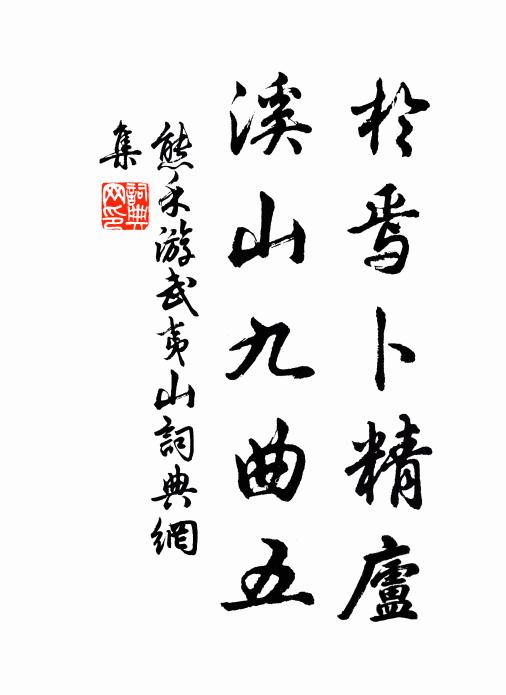 於焉卜精廬
溪山九曲五
熊禾游武夷山詞典網
集
詞典网印